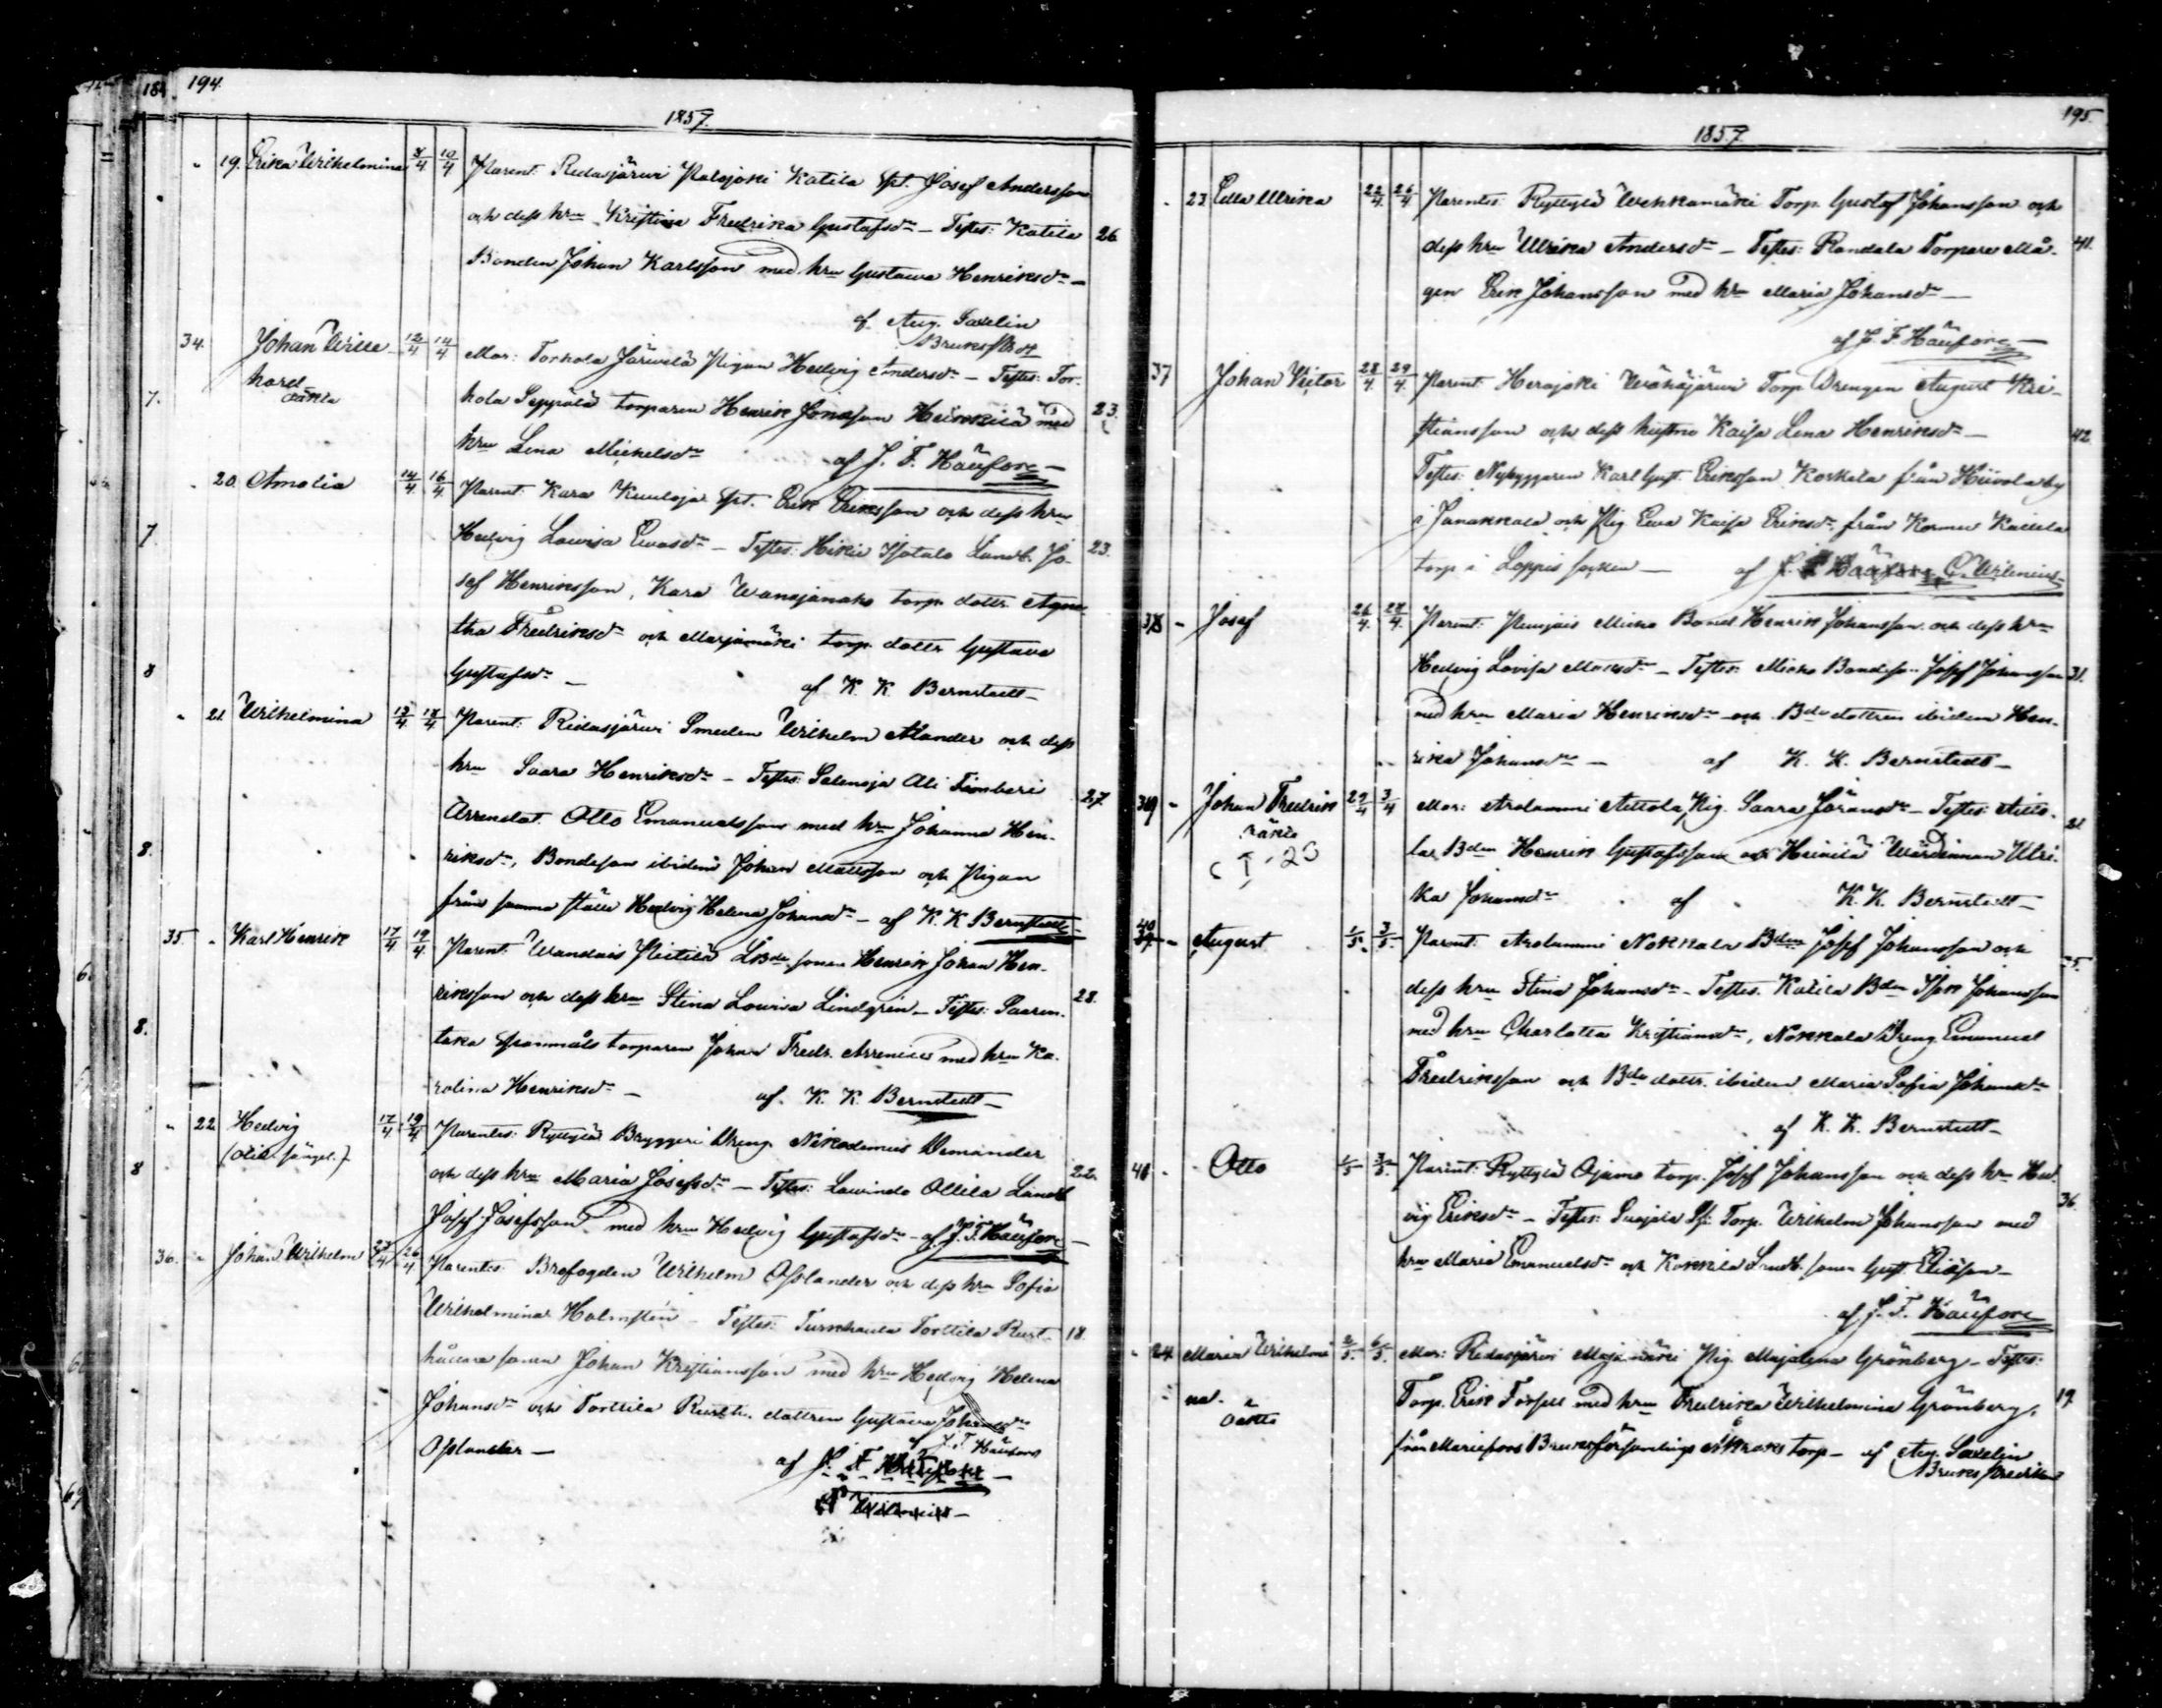 184 194
1857.
19. Erika Wilhelmina 8/4 10/4 Parent: Ridasjärwi Palojoki Katila Spt. Josef Andersson
och dess hru Kristina Fredrika Gustafsdr – Testes: Katila 26
Bonden Johan Karlsson med hru Gustawa Henriksdr –
af Aug. Savelin
34. Johan Wille- 12/4 14/4 Mor: Torhola Järwelä Pigan Hedvig Andersdr – Testes: Tor-
hard
oäkta
7. hola Seppälä torparen Henrik Jonasson Heikkilä med 23.
hru Lena Michelsdr af J. F. Häufore
20. Amalia 14/4 16/4 Parent: Kara Kuuloja Spt. Erik Eriksson och dess hru
7. Hedvig Lowisa Ewasdr – Testes: Hikiä Isotalo Landb. Jo- 23.
sef Henriksson, Kara torp. dottr. Agne-
tha Fredriksdr och Marjamäki torp. dottr Gustava
8 Gustafsdr – af K. K. Bernstedt –
21. Wilhelmina 13/4 18/4 Parent: Ridasjärwi Smeden Wilhelm Alander och dess
hru Saara Henriksdr – Testes: Ali Simberi 27
8. Arrendat. Otto Emanuelsson med hru Johanna Hen-
riksdr, Bondeson ibidem Johan Mattsson och Pigan
från samma ställe Hedvig Helena Johansdr – af K. K. Bernstedt
35. Karl Henrik 17/4 19/4 Parent: Wandais Heikilä Lbde sonen Henrik Johan Hen-
6. riksson och dess hru Stina Lowisa Lindgrén – Testes: Saaren- 28.
8. taka Spannmåls torparen Johan Fredr. med hru Ka-
rolina Henriksdr – af K. K. Bernstedt –
22. Hedvig 17/4 19/4 Parentes: Ryttylä Bryggeri Dreng. Nikodemus Demander
8 och dess hru Maria Josefsdr – Testes: Lawinto Ollila Landb 22.
Josef Josefsson med hru Hedvig Gustafsdr – af J. F. Häufore
36. Johan Wilhelm 23/4 26/4 Parentes: Brofogden Wilhelm Oslander och dess hru Sofia
Wilhelmina Holmstén – Testes: Turkhauta Torttila Rust- 18.
hållare sonen Johan Kristiansson med hru Hedvig Helena
Johansdr och Torttila Rusth. dottren Gustava Johansdr
Oslander – af J. F. Häufore
195.
1857.
23 Ulrika 22/4 26/4 Parentes: Ryttylä Wehkamäki Torp. Gustaf Johansson och
dess hru Ulrika Andersdr – Testes: Randala Torpare Må- 41.
gen Erik Johansson med hru Maria Johansdr –
af J. F. Häufore –
37 Johan Victor 28/4 29/4 Parent: Herajoki Wähäjärwi Torp. Drengen August Kri-
stiansson och dess hustru Kaisa Lena Henriksdr – 42
Testes: Nybyggaren Karl Gust. Eriksson Korkela från Hiivola by
i Janakkala och Pig. Ewa Kaisa Eriksdr från Kormu
torp i Loppis socken – af
38 Josef 26/4 28/4 Parent: Micko Bond Henrik Johansson och dess hru
Hedvig Lovisa – Testes: Micko Bondeson Josef Johansson 31.
med hru Maria Henriksdr och Bde dottren ibidem Hen-
rika Johansdr – af K. K. Bernstedt –
39 Johan Fredrik 29/4 3/4 Mor: Arolammi Pig. Saara Göransdr – Testes: 21
23
la Bden Henrik Gustafsson och Heikilä Wärdinnan Ulri-
ka Johansdr af K. K. Bernstedt –
40 August 1/5 3/5 Parent: Arolammi Nokkala Bden Josef Johansson och
dess hru Stina Johansdr – Testes. Katila Bden Isak Johansson
med hru Charlotta Kristiansdr, Nokkala Dreng Emanuel
Fredriksson och Bde dottr. ibidem Maria Sofia Johansdr
af K. K. Bernstedt –
41 Otto 1/5 3/5 Parent: Ryttylä Ojamo torp. Josef Johansson och dess hru Hed-
vig Eriksdr – Testes: Torp. Wilhelm Johansson med 36.
hru Maria Emanuelsdr och Kokkila Landb. sonen Gust. Eliasson –
af J. F. Häufore
24. Maria Wilhelmi- 2/5 6/5 Mor: Ridasjärwi Majamäki Pig. Majalena Grönberg – Testes:
na. Torp. Erik Forsell med hru Fredrika Wilhelmina Grönberg, 19
oäkta
från Mariefors Bruksförsamlings torp – af Aug. Savelin
Bruks Predikant